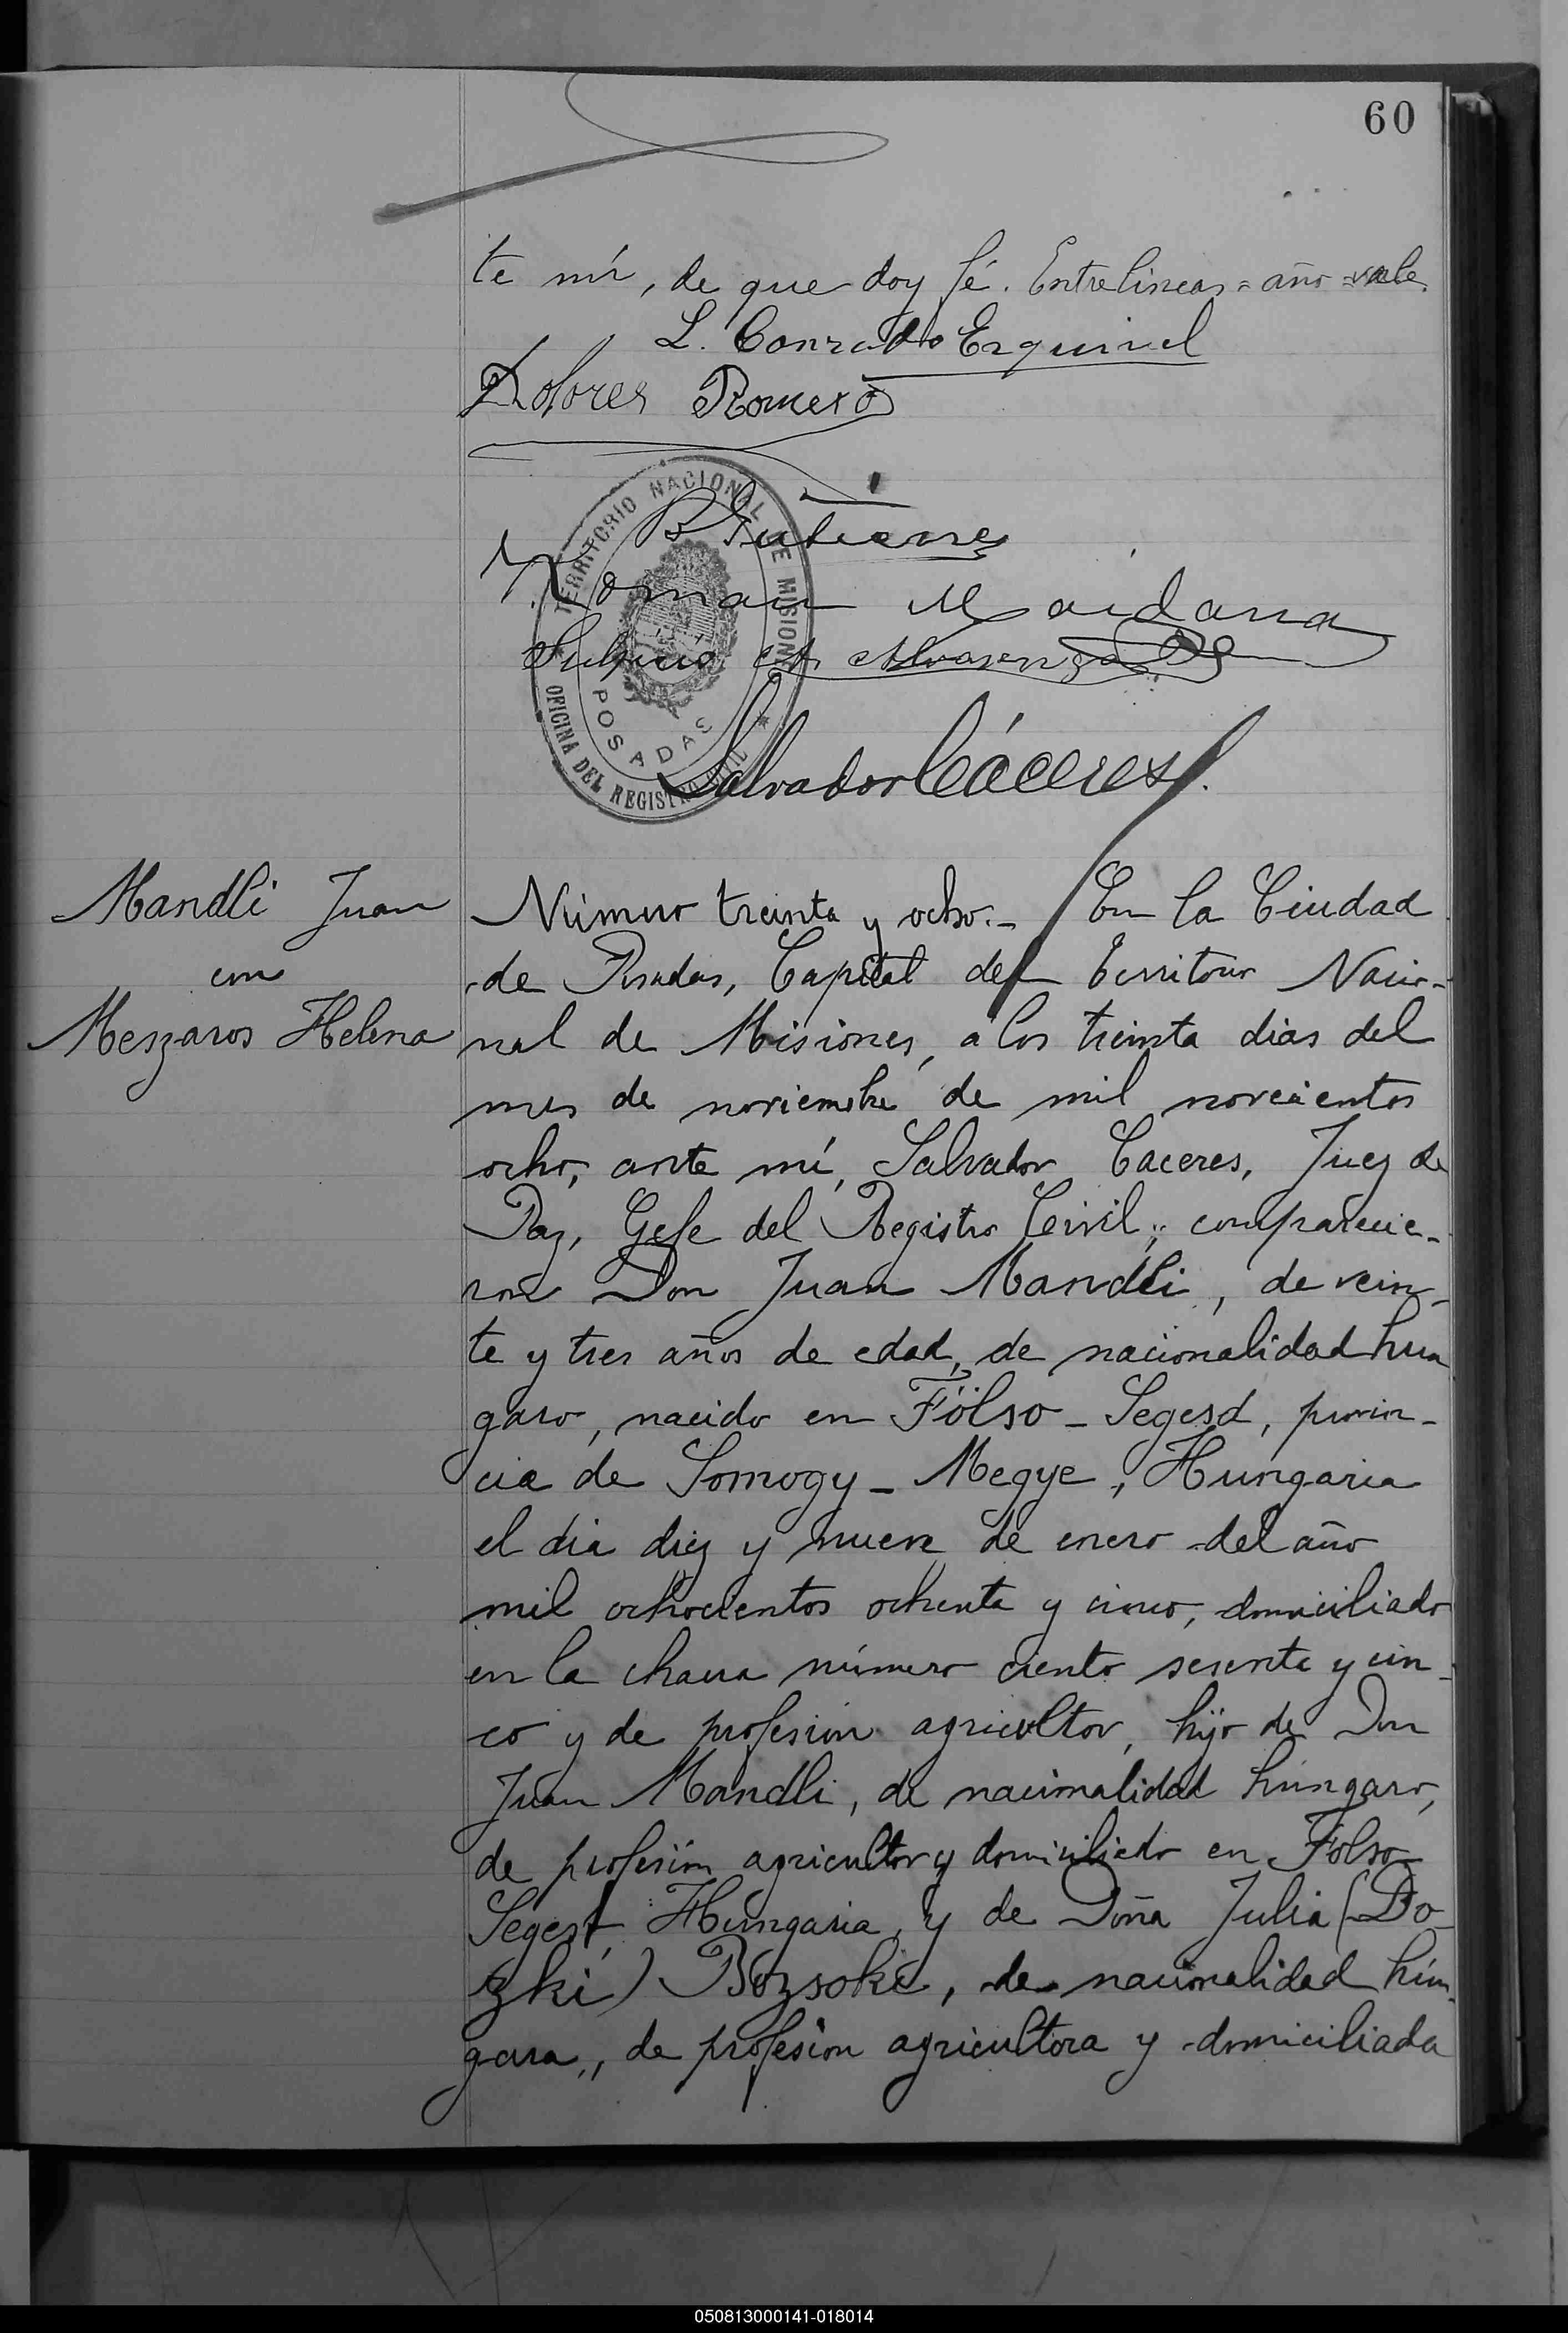 60
te mí, de que doy fé. Entrelineas = año = vale.
L. Conrado Esquivel
Dolores Romero
TERRITORIO NACIONAL DE MISIONES
B Gutierrez
Roman Maidana
Sulpicio A. Alvarenga
POSADAS
OFICINA DEL REGISTRO CIVIL
Salvador Cáceres
Mandli Juan
con
Meszaros Helena
Número treinta y ocho.- En la Ciudad
de Posadas, Capital del Territorio Nacio-
nal de Misiones, a los treinta dias del
mes de noviembre de mil novecientos
ocho, ante mí, Salvador Caceres, Juez de
Paz, Gefe del Registro Civil, comparecie-
ron Don Juan Mandli, de vein-
te y tres años de edad, de nacionalidad hun
garo, nacido en Fölso - Segesd, provin-
cia de Somogy - Megye, Hungaria
el dia diez y nueve de enero del año
mil ochocientos ochenta y cinco, domiciliado
en la chacra número ciento sesenta y cin-
co y de profesion agricultor, hijo de Don
Juan Mandli, de nacionalidad húngaro,
de profesión agricultor y domiciliado en Fölso
Segest, Hungaria, y de Doña Julia (Bo-
zki) Bozsoki, de nacionalidad hún-
gara, de profesion agricultora y domiciliada
050813000141-018014